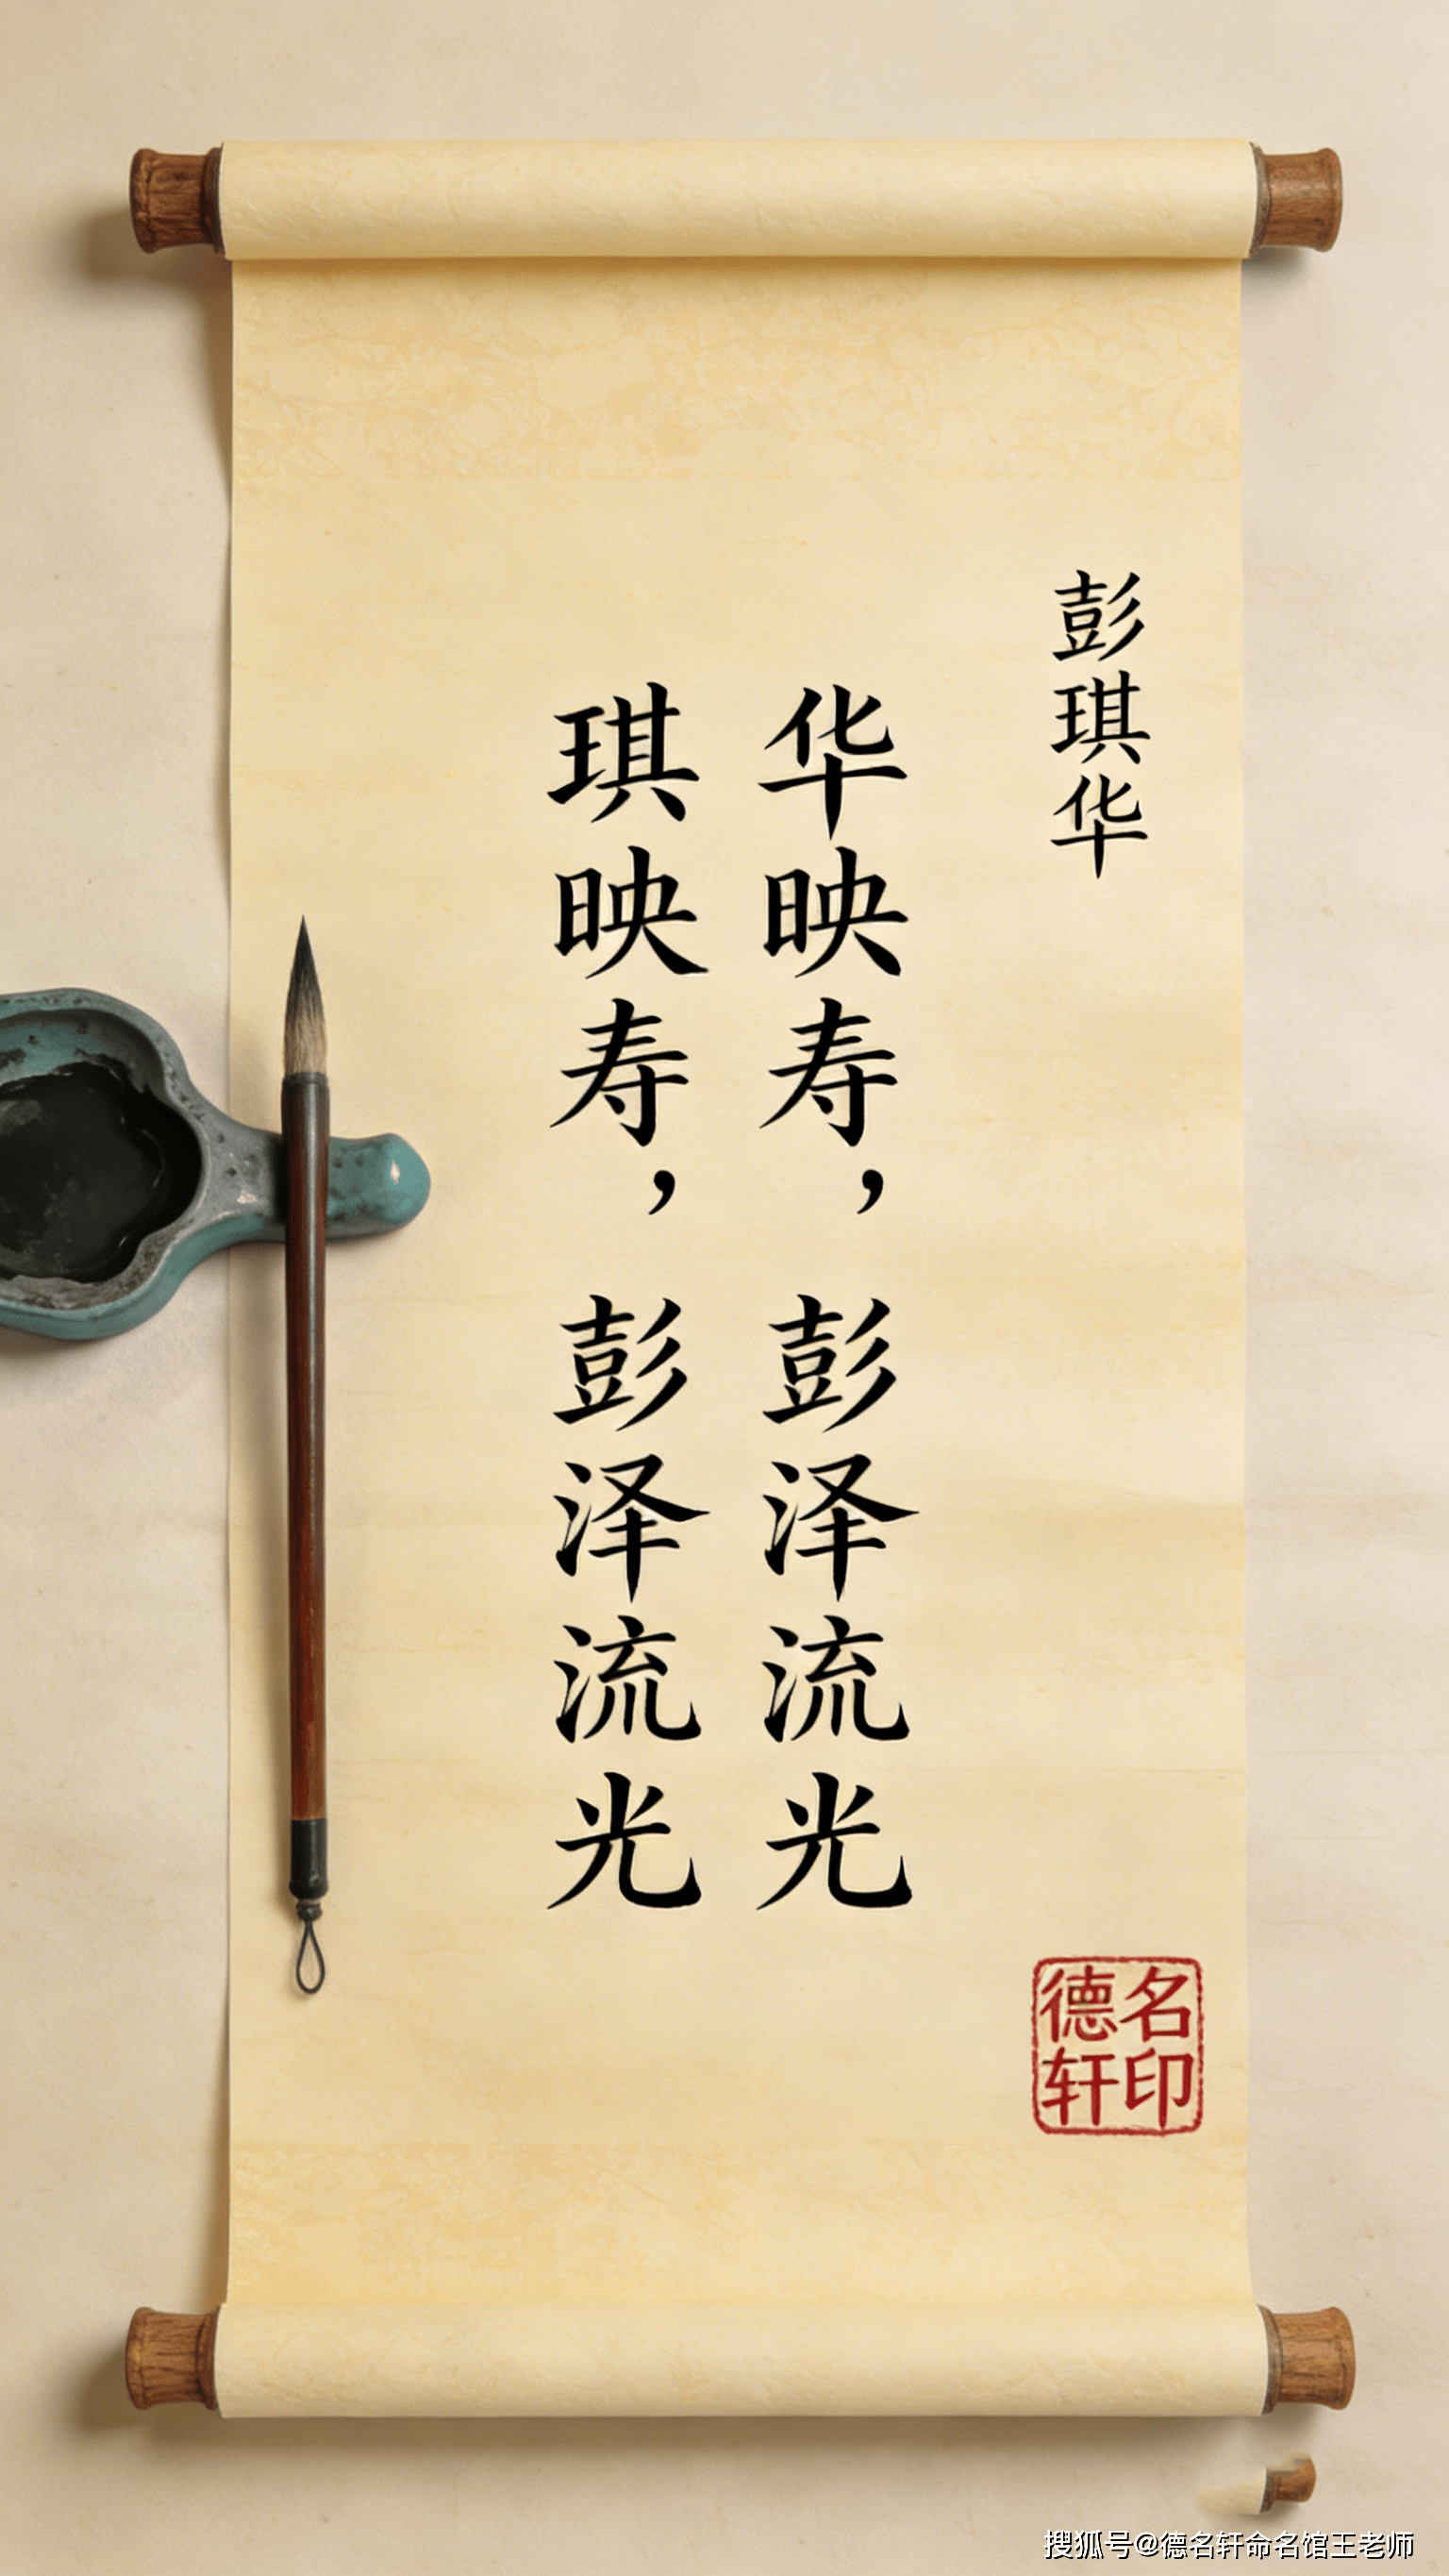 彭琪华
华映寿，彭泽流光
琪映寿，彭泽流光
德名
轩印
搜狐号@德名轩命名馆王老师